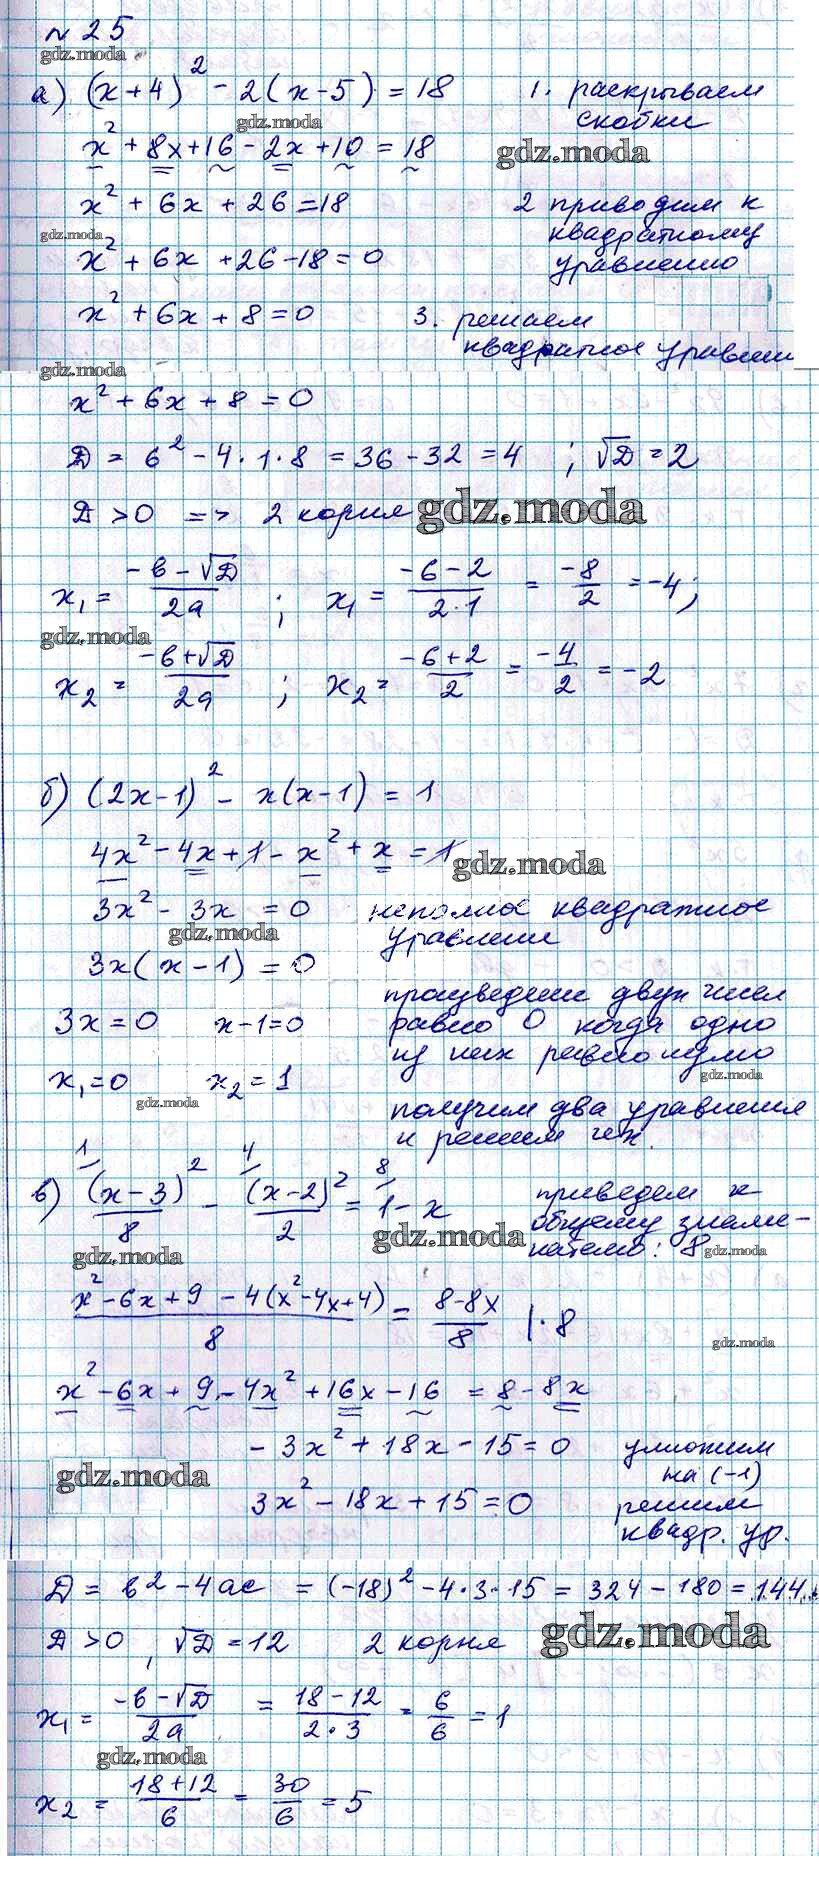 № 25
gdz.moda
а) (x+4)² - 2(x-5) = 18 1. раскрываем скобки
gdz.moda
x² + 8x + 16 - 2x + 10 = 18
gdz.moda
x² + 6x + 26 = 18 2 приводим к
gdz.moda
квадратному
x² + 6x + 26 - 18 = 0 уравнению
x² + 6x + 8 = 0 3. решаем
gdz.moda
квадратное уравнени
x² + 6x + 8 = 0
D = 6² - 4·1·8 = 36 - 32 = 4 ; √D = 2
D > 0 => 2 корня
gdz.moda
x₁ = (-b - √D)/2a ; x₁ = (-6 - 2)/(2·1) = -8/2 = -4;
gdz.moda
x₂ = (-b + √D)/2a ; x₂ = (-6 + 2)/2 = -4/2 = -2
б) (2x-1)² - x(x-1) = 1
4x² - 4x + 1 - x² + x = 1
gdz.moda
3x² - 3x = 0 неполное квадратное
gdz.moda
уравнение
3x(x-1) = 0
произведение двух чисел
3x = 0 x-1=0 равно 0 когда одно
из них равно нулю
gdz.moda
x₁=0 x₂=1
gdz.moda
получим два уравнения
и решим их.
в) (x-3)²/8 - (x-2)²/2 = 1 - x
1 4 8
приведем к
общему знаме-
нателю: 8
gdz.moda
gdz.moda
gdz.moda
(x² - 6x + 9 - 4(x² - 4x + 4))/8 = (8 - 8x)/8 |·8
gdz.moda
x² - 6x + 9 - 4x² + 16x - 16 = 8 - 8x
- 3x² + 18x - 15 = 0 умножим
на (-1)
gdz.moda
3x² - 18x + 15 = 0 решим
квадр. ур.
D = b² - 4ac = (-18)² - 4·3·15 = 324 - 180 = 144
D > 0, √D = 12 2 корня
gdz.moda
x₁ = (-b - √D)/2a = (18 - 12)/(2·3) = 6/6 = 1
gdz.moda
x₂ = (18 + 12)/6 = 30/6 = 5